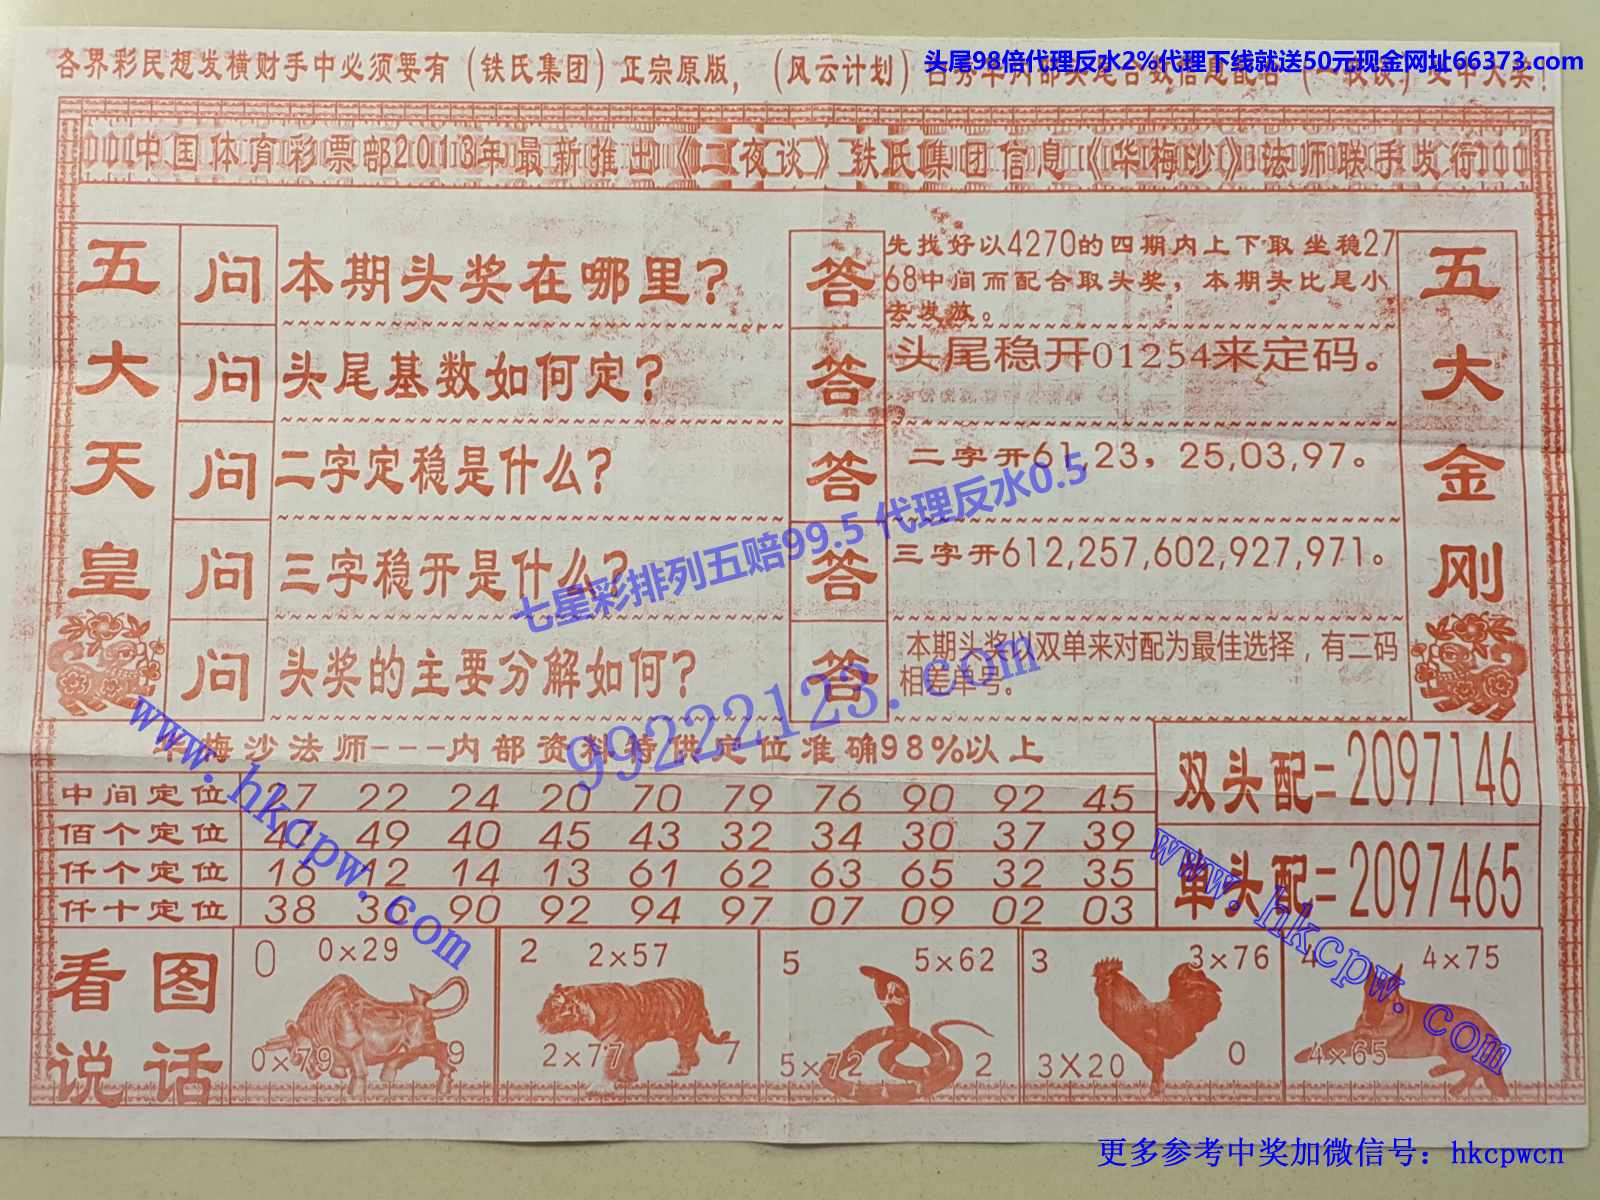 头尾98倍代理反水2%代理下线就送50元现金网址66373.com
各界彩民想发横财手中必须要有（铁氏集团）正宗原版，（风云计划）
中国体育彩票部2013年最新推出《一夜谈》铁氏集团信息《华梅沙》法师联手发行
五大天皇
问 本期头奖在哪里？
答 先找好以4270的四期内上下取坐稳27
68中间而配合取头奖，本期头比尾小
去发放。
问 头尾基数如何定？
答 头尾稳开01254来定码。
问 二字定稳是什么？
答 二字开61,23，25,03,97。
问 三字稳开是什么？
答 三字开612,257,602,927,971。
问 头奖的主要分解如何？
答 本期头奖以双单来对配为最佳选择，有二码
相差单号。
五大金刚
七星彩排列五赔99.5 代理反水0.5
99222123.com
www.hkcpw.com
www.hkcpw.com
华梅沙法师---内部资料特供定位准确98%以上
中间定位 27 22 24 20 70 79 76 90 92 45
佰个定位 47 49 40 45 43 32 34 30 37 39
仟个定位 16 12 14 13 61 62 63 65 32 35
仟十定位 38 36 90 92 94 97 07 09 02 03
双头配=2097146
单头配=2097465
看图
说话
0 0×29
0×79 9
2 2×57
2×77 7
5 5×62
5×72 2
3 3×76
3×20 0
4 4×75
4×65
更多参考中奖加微信号：hkcpwcn